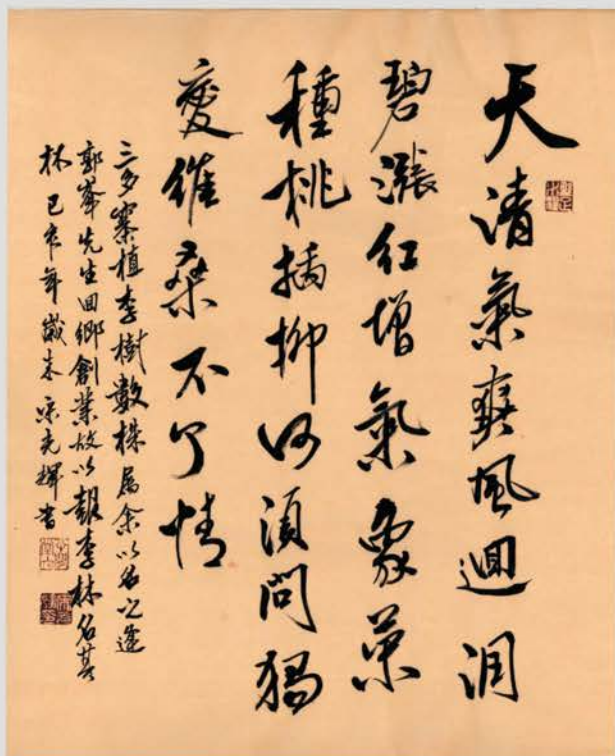 天清氣爽風迴澗
碧漲紅增氣象榮
種桃插柳何須問獨
愛維桑不了情
三多寨植李樹數株屬余以名之逢
郭峯先生回鄉創業故以報李林名其
林 己年歲末宋光輝書